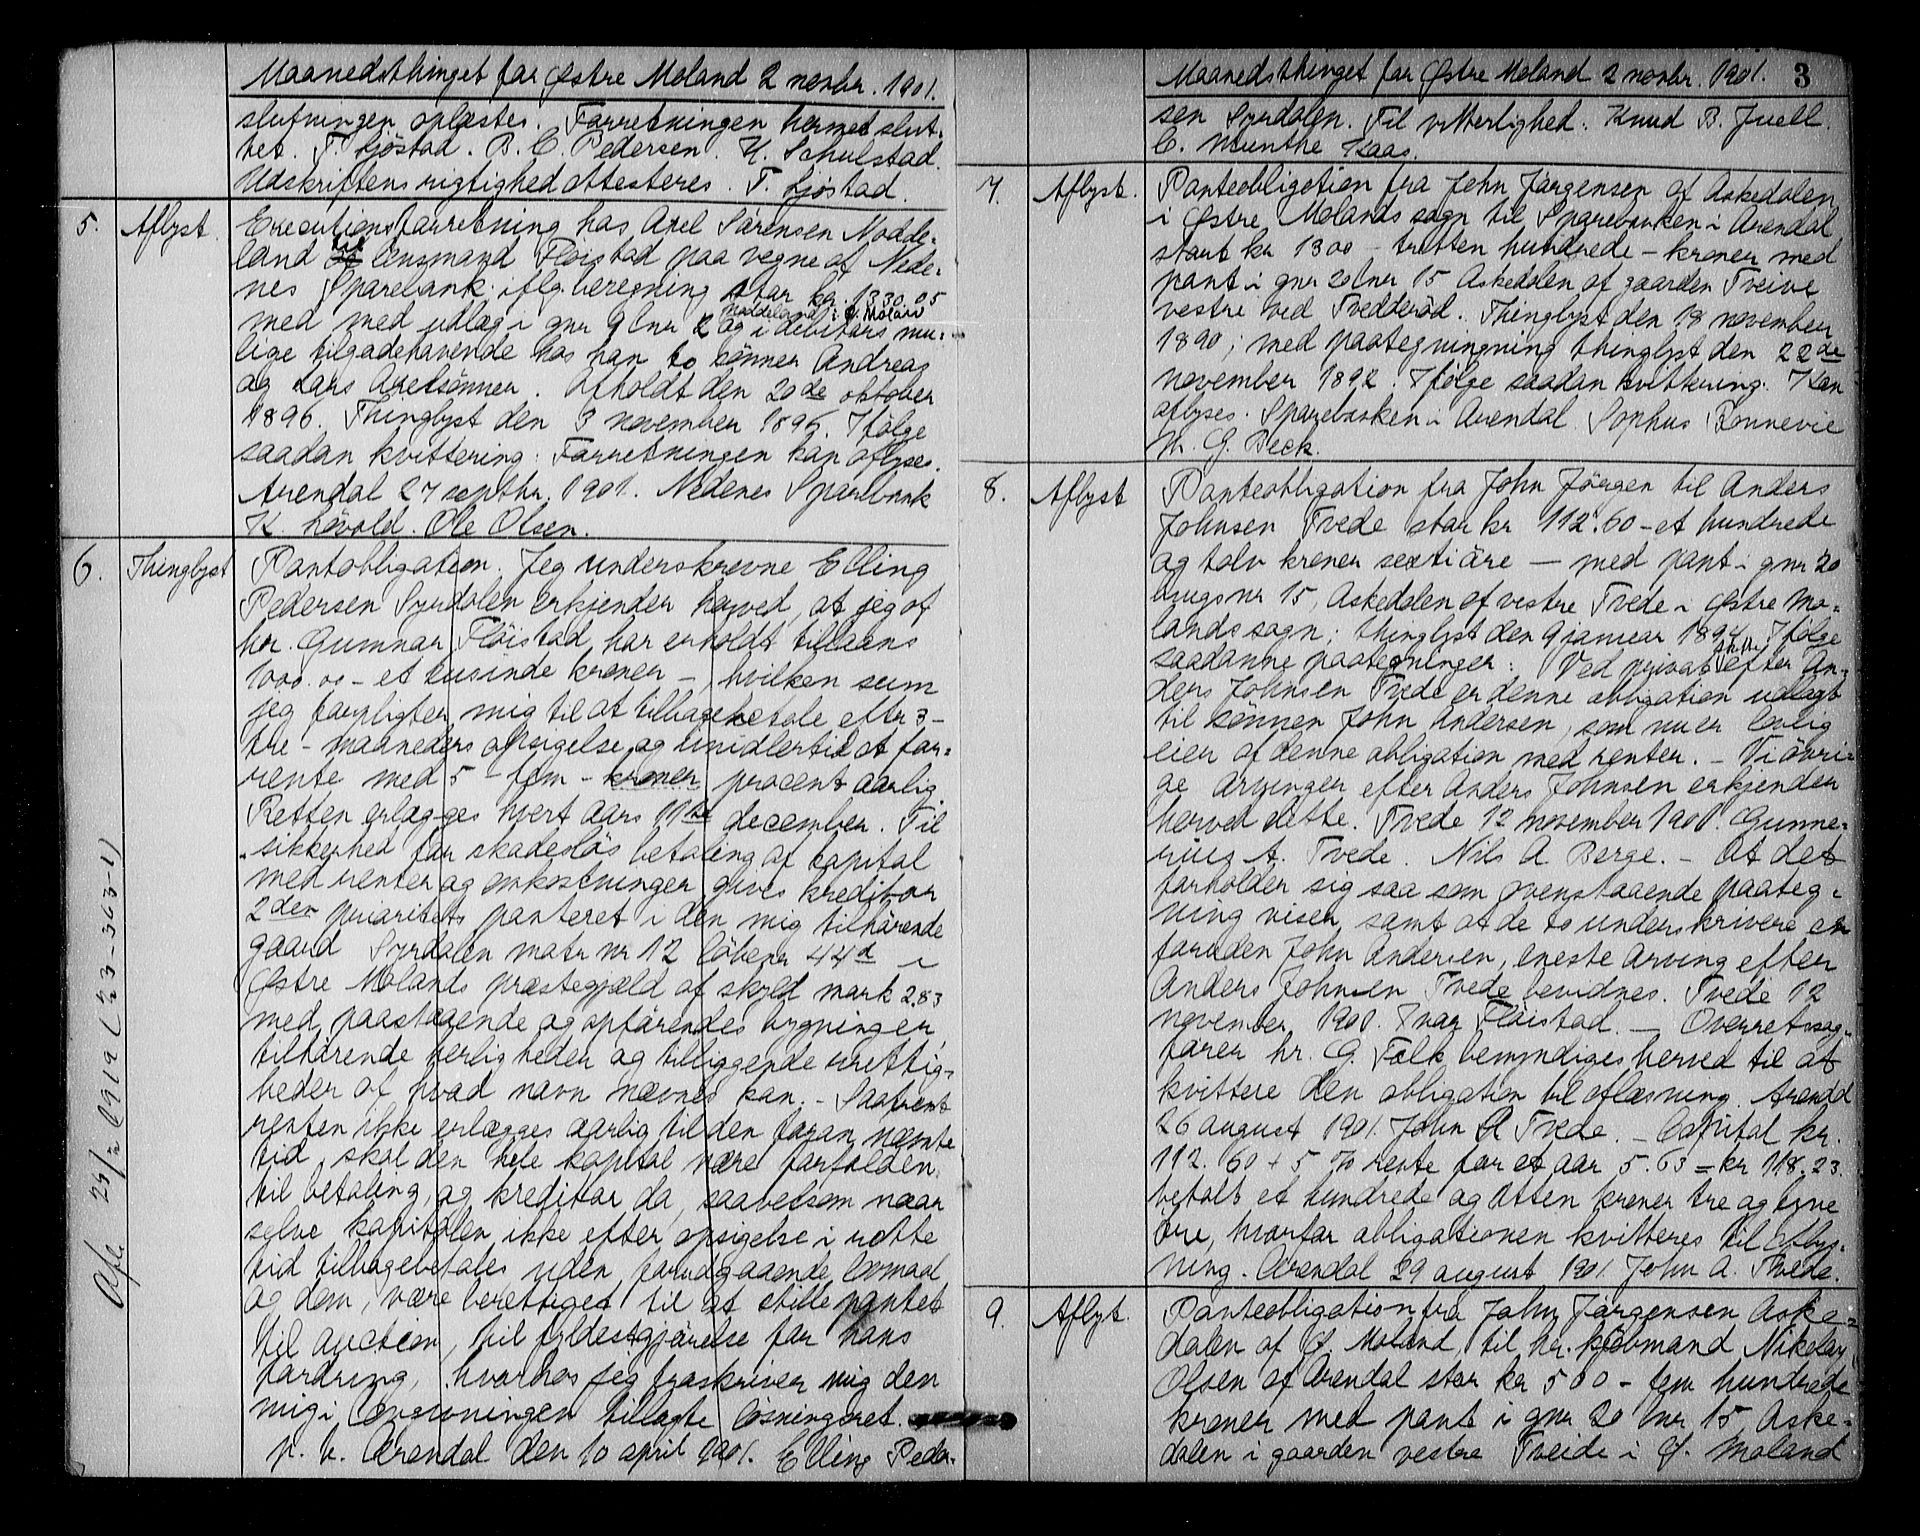 Maanedsthinget for Østre Moland 2 novbr. 1901.
slutningen oplæstes. Forretningen hermet slut-
tet. T. Sjöstad. B. C. Pedersen. H. Schulstad.
Udskriftens rigtighed attesteres. T. Sjöstad.
5. Aflyst. Executionsforretning hos Axel Sörensen Nodde-
land til lensmand Flöistad paa vegne af Nede-
nes Sparebank iflg. beregning stor kr. 1330.05
med med udlæg i gnr 9 bnr 2 Noddeland i Ø. Moland og i debitors mu-
lige tilgodehavende hos han to sönner Andreas
og Lars Axelsönner. Afholdt den 20de oktober
1896. Thinglyst den 3 november 1896. Ifölge
saadan kvittering: Forretningen kan aflyses.
Arendal 27 septbr. 1901. Nedenes Sparebank
K. Lövold. Ole Olsen.
6. Thinglyst Pantobligation. Jeg underskrevne Elling
Pedersen Syrdalen erkjender herved, at jeg af
hr. Gunnar Flöistad har erholdt tillaans
1000.00 - et tusinde kroner -, hvilken sum
jeg forpligter mig til at tilbagebetale efter 3-
tre - maaneders opsigelse og imidlertid at for-
rente med 5 - fem - kroner procent aarlig.
Retten erlægges hvert aars 11te december. Til
sikkerhed for skadeslös betaling af kapital
med renter og omkostninger gives kreditor
2den prioritets panteret i den mig tilhörende
gaard Syrdalen matr nr 12 löbenr 44d i
Østre Molands præstegjæld af skyld mark 2.83
med paastaaende og opförendes bygninger,
tilhörende herligheder og tilliggende rettig-
heder af hvad navn nævnes kan. - Saafremt
renten ikke erlægges aarlig til den foran nævnte
tid, skal den hele kapital være forfalden
til betaling, og kreditor da, saavelsom naar
selve kapitalen ikke efter opsigelse i rette
tid tilbagebetales uden forudgaaende lovmaal
og dom, være berettiget til at stille pantet
til auction, til fyldestgjörelse for hans
fordring, hvorhos jeg fraskriver mig den
mig i lovgivningen tillagte lösningsret.
p. t. Arendal den 10 april 1901. Elling Peder-
Afl 25/2 1919 (
Maanedsthinget for Østre Moland 2 novbr. 1901. 3
sen Syrdalen. Til vitterlighed: Knud B. Juell.
C. Munthe Kaas.
7. Aflyst. Panteobligation fra John Jörgensen af Askedalen
i Østre Molands sogn til Sparebanken i Arendal
stort kr 1300 - tretten hundrede - kroner med
pant i gnr 20 bnr 15 Askedalen af gaarden Tveive
vestre ved Tvedderöd. Thinglyst den 18 november
1890; med paategningning thinglyst den 22de
november 1892. Ifölge saadan kvittering: Kan
aflyses. Sparebanken i Arendal Sophus Bonnevie
Th. G. Beck.
8. Aflyst Panteobligation fra John Jörgen til Anders
Johnsen Tvede stor kr 112.60 - et hundrede
og tolv kroner sexti öre - med pant i gnr 20
brugsnr 15, Askedalen af vestre Tvede i Østre Mo-
lands sogn; thinglyst den 9 januar 1894. Ifölge
saadanne paategninger: Ved privat skifte efter An-
ders Johnsen Tvede er denne obligation udlagt
til sönnen John Andersen, som nu er lovlig
eier af denne obligation med renter. - Vi övri-
ge arvinger efter Anders Johnsen erkjender
herved dette. Tvede 12 november 1900. Gunne-
rius A. Tvede. Nils A Berge. - At det
forholder sig saa som ovenstaaende paateg-
ning viser, samt at de to underskrivere er
foruden John Andersen, eneste arving efter
Anders Johnsen Tvede bevidnes. Tvede 12
november 1900. Ivar Flöistad. - Overretssag-
förer hr. G. Falk bemyndiges herved til at
kvittere den obligation til aflæsning. Arendal
26 august 1901. John A Tvede. - Capital kr.
112.60 + 5 % rente for et aar 5.63 = kr 118.23.
betalt et hundrede og atten kroner tre og tyve
öre, hvorfor obligationen kvitteres til aflys-
ning. Arendal 29 august 1901. John A. Tvede.
9. Aflyst. Panteobligation fra John Jörgensen Aske-
dalen af Ø. Moland til hr. kjöbmand Nikolay
Olsen af Arendal stor kr 500 - fem hundrede
kroner med pant i gnr 20 bnr 15 Aske-
dalen i gaarden vestre Tveide i Ø. Moland